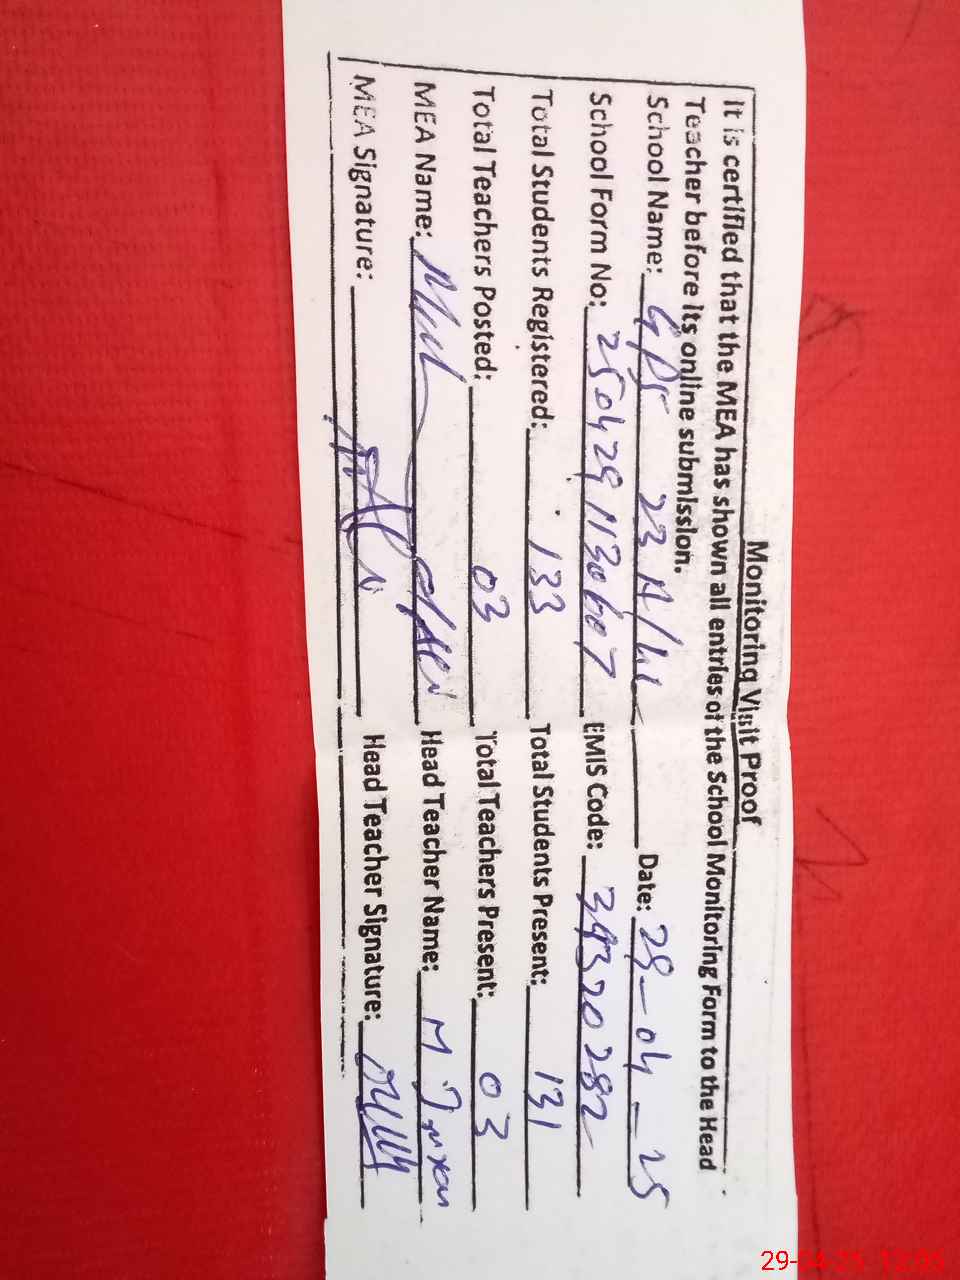 Monitoring Visit Proof
It is certified that the MEA has shown all entries of the School Monitoring Form to the Head
Teacher before its online submission.
School Name: GPS 23 A/hl Date: 29-04-25
School Form No: 2504291130607 EMIS Code: 39320282
Total Students Registered: 133 Total Students Present: 131
Total Teachers Posted: 03 Total Teachers Present: 03
MEA Name: Head Teacher Name: M Imran
MEA Signature: Head Teacher Signature:
29-04-25